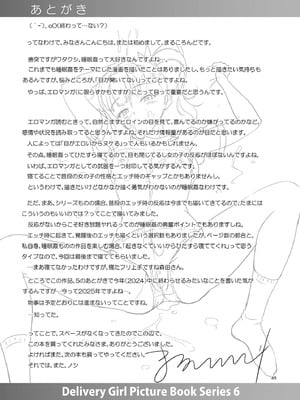 あとがき
( ´-`).oO(終わって…ない？)
ってなわけで、みなさんこんにちは、または初めまして、まるころんどです。
唐突ですがワタクシ、睡眠姦って大好きなんですよね…
これまでも睡眠姦をテーマにした漫画を描いたことはありましたし、もっと描きたい気持ちも
あるんですが、悩みどころが、「目が開いてない」ってことなんですよね。
やっぱ、エロマンガ(に限らずかもですが)にとって目って重要だと思うんです。
エロマンガ読むときって、自然とまずヒロインの目を見て、喜んでるのか嫌がってるのかなど、
感情や状況を読み取ってると思うんですよね。それだけ情報量があるのが目だと思います。
人によっては「目がエロいからヌケる」って人もいるかもしれません。
その点、睡眠姦ってひたすら寝てるので、目も閉じてるし女の子の反応がほぼないんですよね。
いわば、エロマンガとしての武器を一つ封印してる気がするんです。
寝てることで普段の女の子の性格とエッチ時のギャップとかもありませんし。
というわけで、描きたいけどなかなか描く勇気がわかないのが睡眠姦なわけです。
ただ、まあ、シリーズもの の場合、普段のエッチ時の反応は今まででも描いてきてるので「たまには
こういうのもいいのでは？」ってことで描いてみました。
反応がないからこそ好き放題ヤれるってのが睡眠姦の興奮ポイントでもありますしね。
エッチ時に起きて、覚醒後のエッチも描くという選択肢もありましたが、ページ数の都合と、
私自身、睡眠姦ものの作品を楽しむ場合、「起きなくていいからひたすら寝ててくれ」って思う
タイプなので、今回は最後まで寝ててもらいました。
…まあ寝てなかったわけですが。寝たフリ上手ですね森田さん。
ところでこの作品、5のあとがきで今年(2024)中に終わらせるみたいなことを書いた気が
するんですが…今って2025年ですよね…
物事は予定どおりには進まないってことですね。
…知ってた。
ってことで、スペースがなくなってきたのでこの辺で。
この本を買ってくれたみなさま、ありがとうございました。
よければまた、次の本も買ってやってください。
それでは、また。ノシ
Delivery Girl Picture Book Series 6